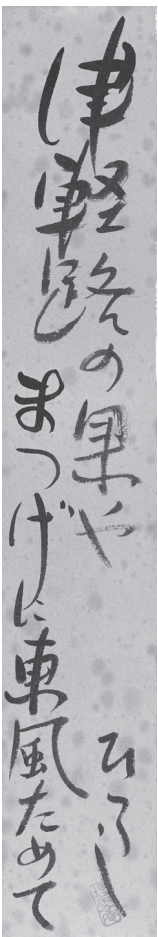 津軽路の果や
まつげに東風ためて
ひろし